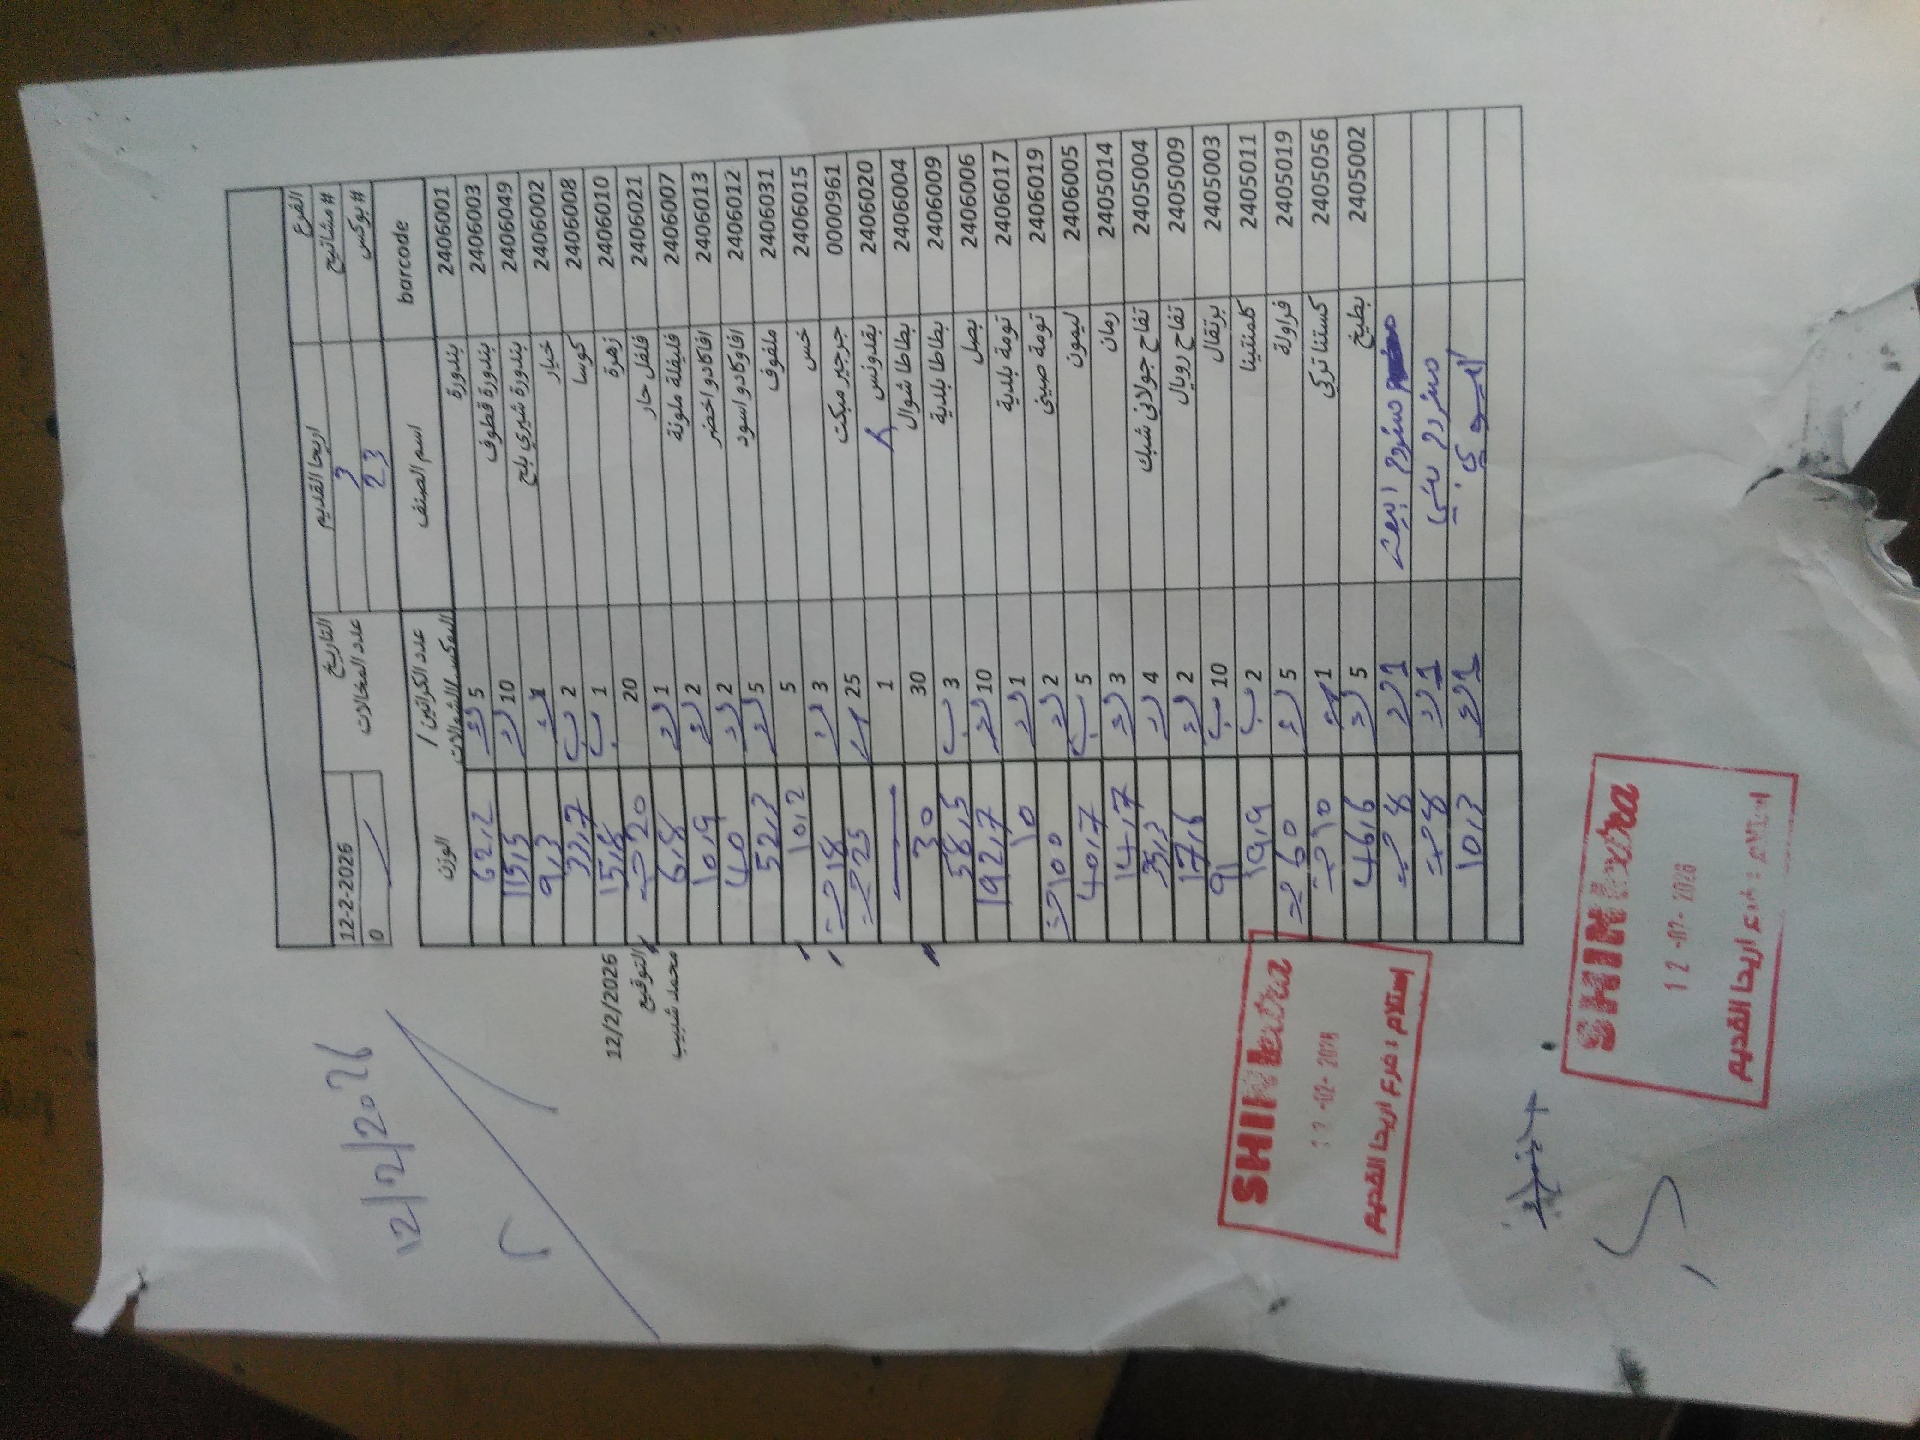 الفرع اريحا القديم التاريخ 12-2-2026
# مشاتيح 3 عدد المخالات 0
# بوكس 23
barcode اسم الصنف عدد الكراتين / البوكس/الشوالات الوزن
2406001 بندورة 5 62,2
2406003 بندورة قطوف 10 115,5
2406049 بندورة شيري بلح 1 9,3
2406002 خيار 2 33,7
2406008 كوسا 1 15,8
2406010 زهرة 20 20
2406021 فلفل حار 1 6,8
2406007 فليفلة ملونة 2 10,9
2406013 افاكادو اخضر 2 40
2406012 افاوكادو اسود 5 52,3
2406031 ملفوف 5 10,2
2406015 خس 3 18
0000961 جرجير مبكت 25 25
2406020 بقدونس 1
2406004 بطاطا شوال 30 30
2406009 بطاطا بلدية 3 58,5
2406006 بصل 10 192,7
2406017 تومة بلدية 1 10
2406019 تومة صيني 2 100
2406005 ليمون 5 40,7
2405014 رمان 3 14,7
2405004 تفاح جولاني شبك 4 35,3
2405009 تفاح رويال 2 17,6
2405003 برتقال 10 91
2405011 كلمنتينا 2 19,9
2405019 فراولة 5 60
2405056 كستنا تركي 1 10
2405002 بطيخ 5 46,6
مشروم ابيض 1 8
مشروم بني 1 8
1 10,3
12/2/2026
التوقيع
محمد شبيب
12/2/2026
SHINIextra
12-02-2026
استلام : فرع اريحا القديم
SHINIextra
12-02-2026
استلام : فرع اريحا القديم